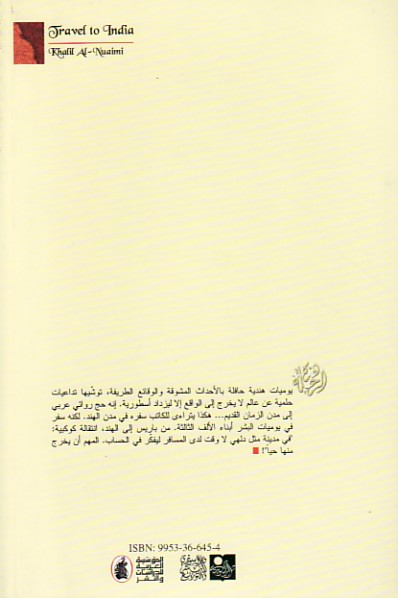 Travel to India
Khalil Al-Nuaimi
يوميات هندية حافلة بالأحداث المشوقة والوقائع الطريفة، توشّيها تداعيات
حلمية عن عالم لا يخرج إلى الواقع إلا ليزداد أسطورية. إنه حج روائي عربي
إلى مدن الزمان القديم... هكذا يتراءى للكاتب سفره في مدن الهند. لكنه سفر
في يوميات البشر أبناء الألف الثالثة. من باريس إلى الهند، انتقالة كوكبية:
"في مدينة مثل دلهي لا وقت لدى المسافر ليفكّر في الحساب. المهم أن يخرج
منها حياً"!
ISBN: 9953-36-645-4
المؤسسة
العربية
للدراسات
والنشر